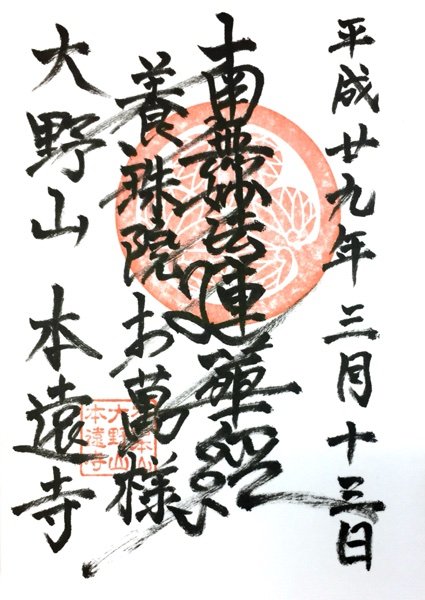 平成廿九年三月十三日
南無妙法蓮華経
養珠院お萬様
大野山 本遠寺
大野山
本遠寺